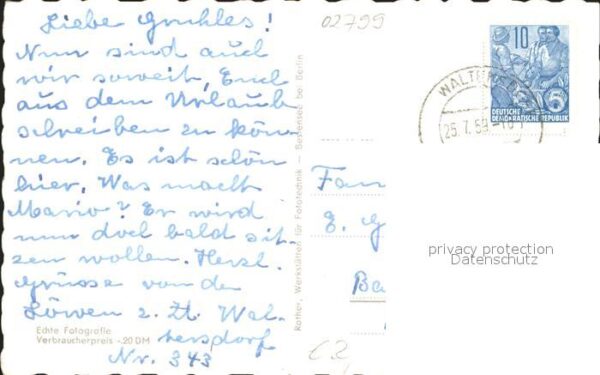 Liebe Gruhles!
Nun sind auch
wir soweit, Euch
aus dem Urlaub
schreiben zu kön-
nen. Es ist schön
hier. Was macht
Mario? Er wird
nun doch bald sit-
zen wollen. Herzl.
Grüsse von den
Löwen z. Zt. Wal-
tersdorf
Nr. 343
Echte Fotografie
Verbraucherpreis -.20 DM
Rothe, Werkstätten für Fototechnik — Bestensee bei Berlin
02799
10
5
DEUTSCHE
DEMOKRATISCHE REPUBLIK
25.7.59
Fam
E. G
Ba
privacy protection
Datenschutz